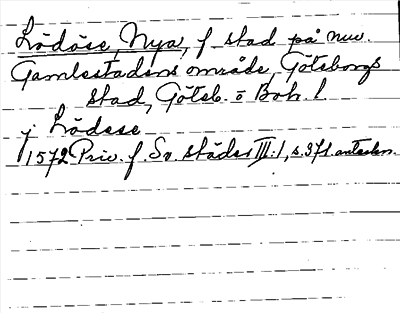 Lödöse, Nya, f stad på nuv.
Gamlestadens område, Göteborgs
stad, Göteb. o Boh. l
j Lödese
1572 Priv. f. Sv. städer III:1, s. 371. anteckn.